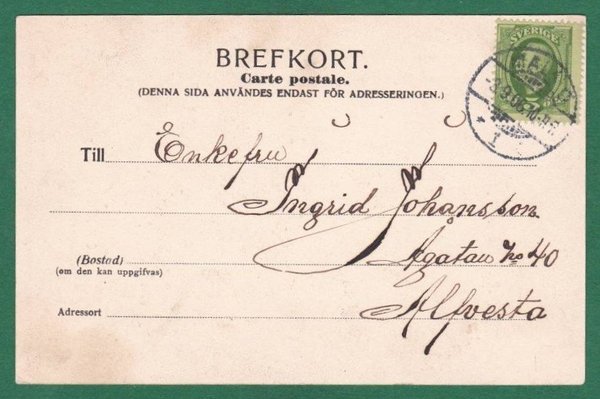 BREFKORT.
Carte postale.
(DENNA SIDA ANVÄNDES ENDAST FÖR ADRESSERINGEN.)
SVERIGE
Till Enkefru
Ingrid Johansson
Ågatan No 40
(Bostad)
(om den kan uppgifvas)
Alfvesta
Adressort